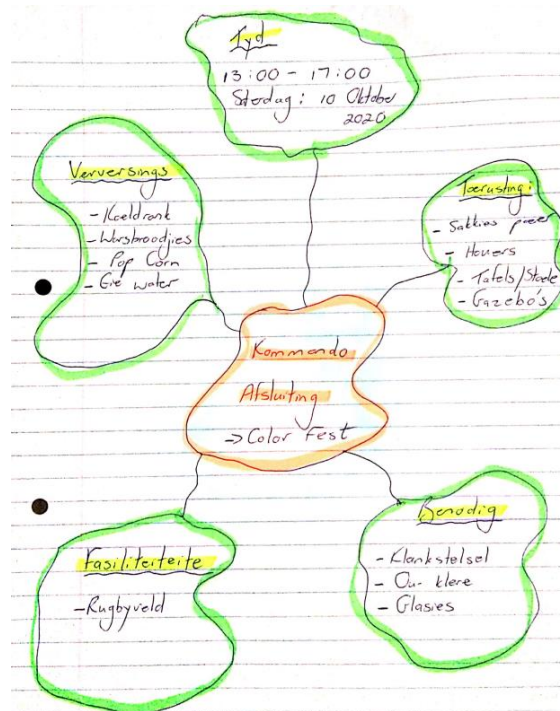 Tyd
13:00 - 17:00
Sterdag: 10 Oktober
2020
Verversings
- Koeldrank
- Worsbroodjies
- Pop Corn
- Eie water
Toerusting:
- Sakkies
- Houers
- Tafels/Stoele
- Gazebo's
Kommando
Afsluiting
-> Color Fest
Fasiliteite
- Rugbyveld
Benodig
- Klankstelsel
- Ou klere
- Glasies